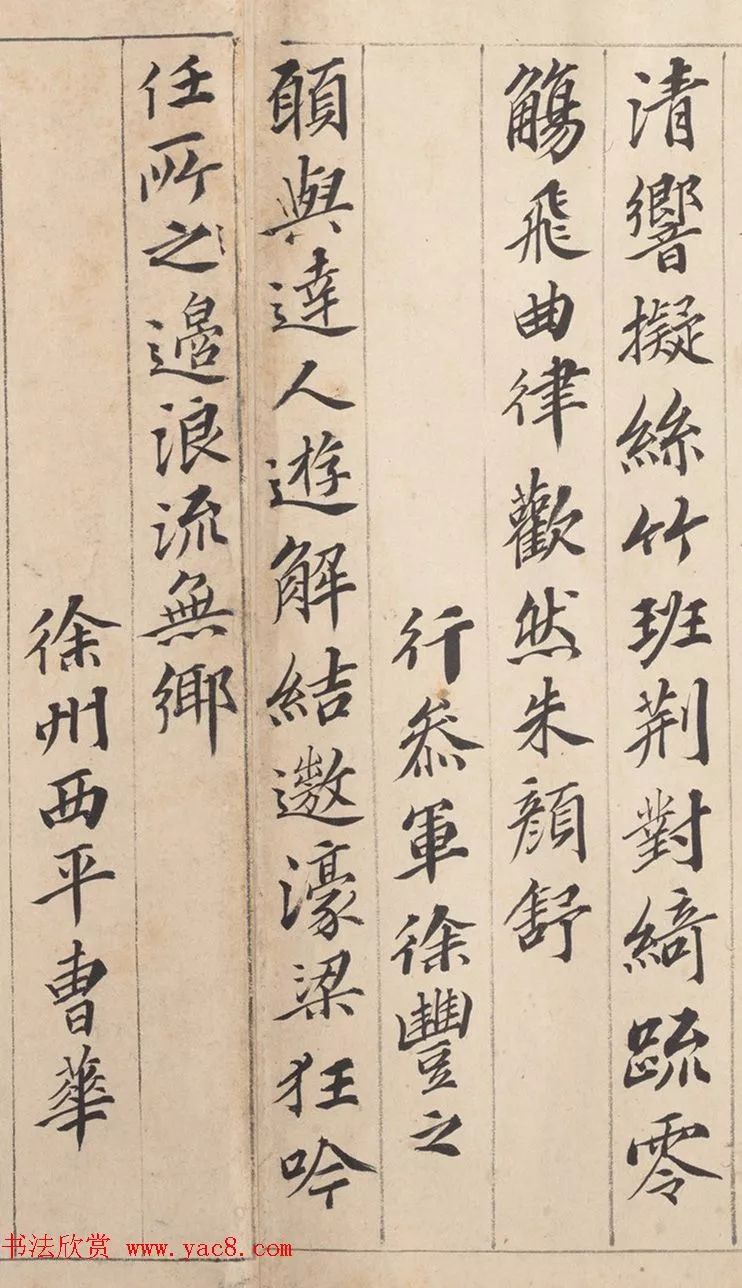 清響擬絲竹班荆對綺䟽零
觴飛曲律歡然朱顏舒
行叅軍徐豐之
願與達人遊解結遨濠梁狂吟
任所之邉浪流無鄉
徐州西平曹華
书法欣赏 www.yac8.com